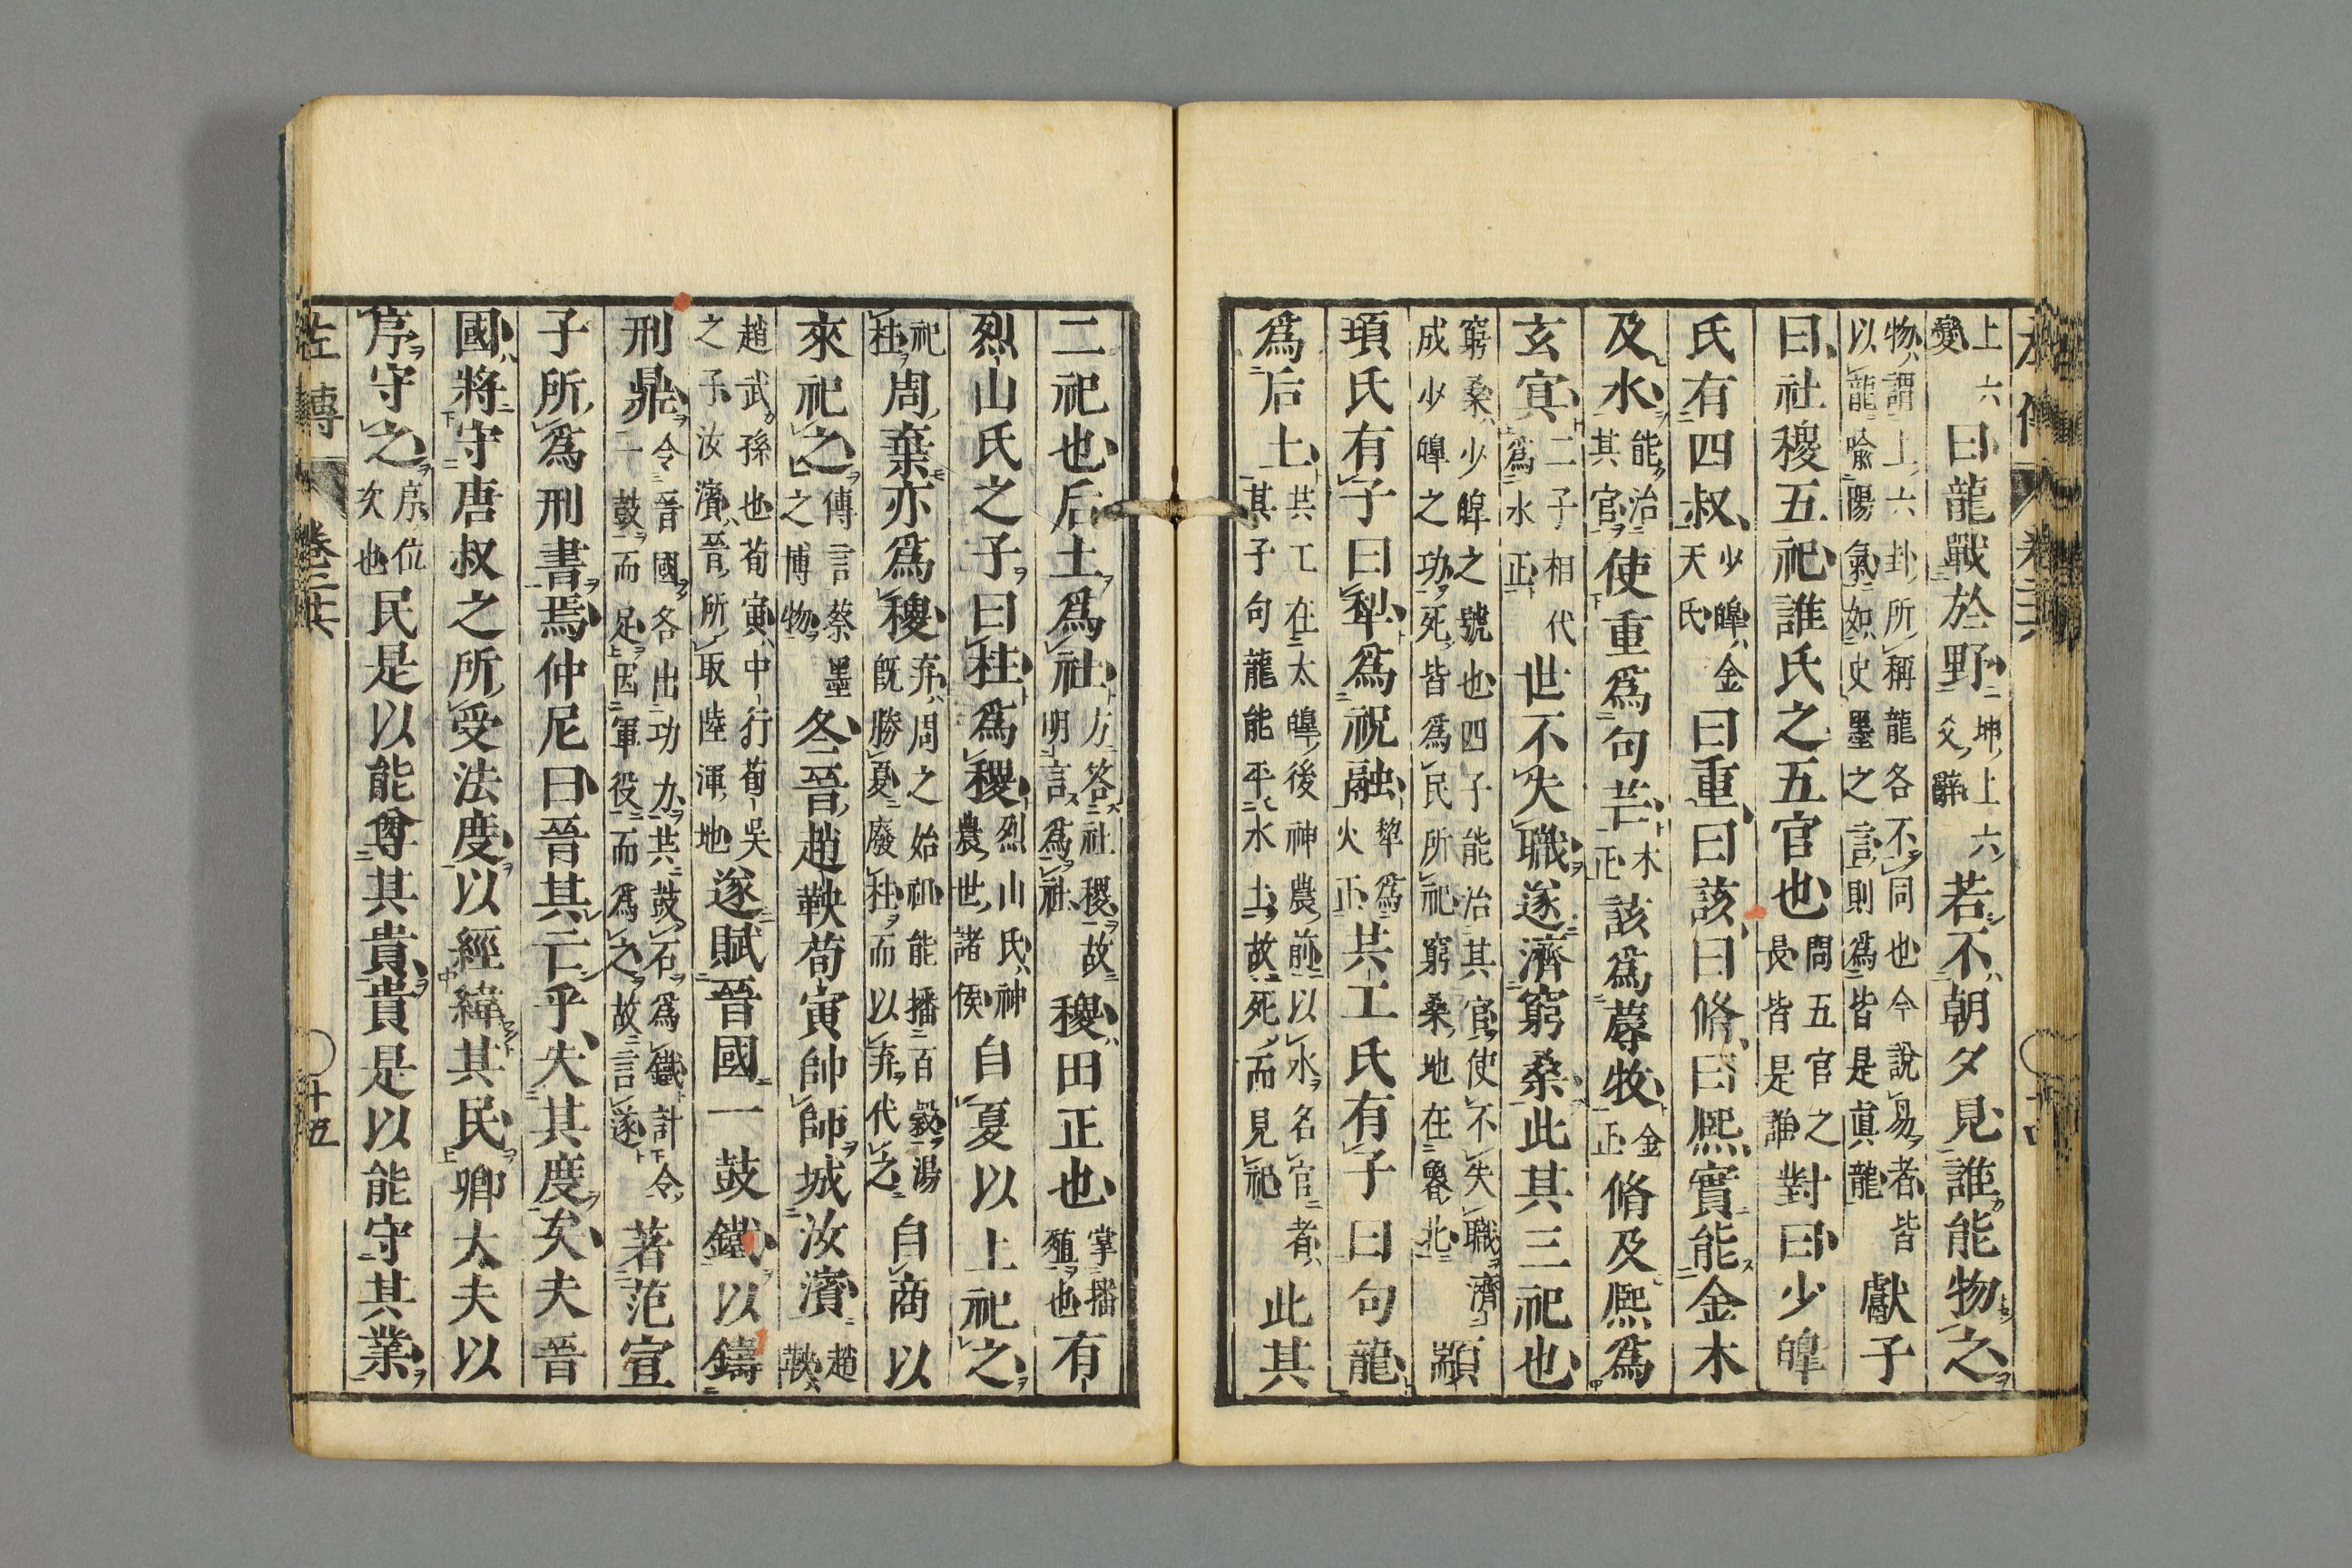 上六變曰龍戰於野坤上六爻辭若不朝夕見誰能物之
物謂上六卦所稱龍各不同也今說易者皆以龍喻陽氣如史墨之言則爲皆是眞龍獻子
曰社稷五祀誰氏之五官也問五官之長皆是誰對曰少皥
氏有四叔少皥金天氏曰重曰該曰脩曰熙實能金木
及水能治其官使重爲句芒木正該爲蓐收金正脩及熙爲
玄冥二子相代爲水正世不失職遂濟窮桑此其三祀也
窮桑少皥之號也四子能治其官使不失職濟成少皥之功死皆爲民所祀窮桑地在魯北顓
頊氏有子曰犂爲祝融犂爲火正共工氏有子曰句龍
爲后土共工在太皥後神農前以水名官者其子句龍能平水土故死而見祀此其
二祀也后土爲社方答社稷故明言爲社稷田正也掌播殖也有
烈山氏之子曰柱爲稷烈山氏神農世諸侯自夏以上祀之
祀柱周棄亦爲稷弃周之始祖能播百穀湯既勝夏廢柱而以弃代之自商以
來祀之傳言蔡墨之博物冬晉趙鞅荀寅帥師城汝濱趙鞅
趙武孫也荀寅中行荀吳之子汝濱晉所取陸渾地遂賦晉國一鼓鐵以鑄
刑鼎令晉國各出功力共鼓石爲鐵計令一鼓而足因軍役而爲之故言遂著范宣
子所爲刑書焉仲尼曰晉其亡乎失其度矣夫晉
國將守唐叔之所受法度以經緯其民卿大夫以
序守之序位次也民是以能尊其貴貴是以能守其業
左傳 卷二十六 十五